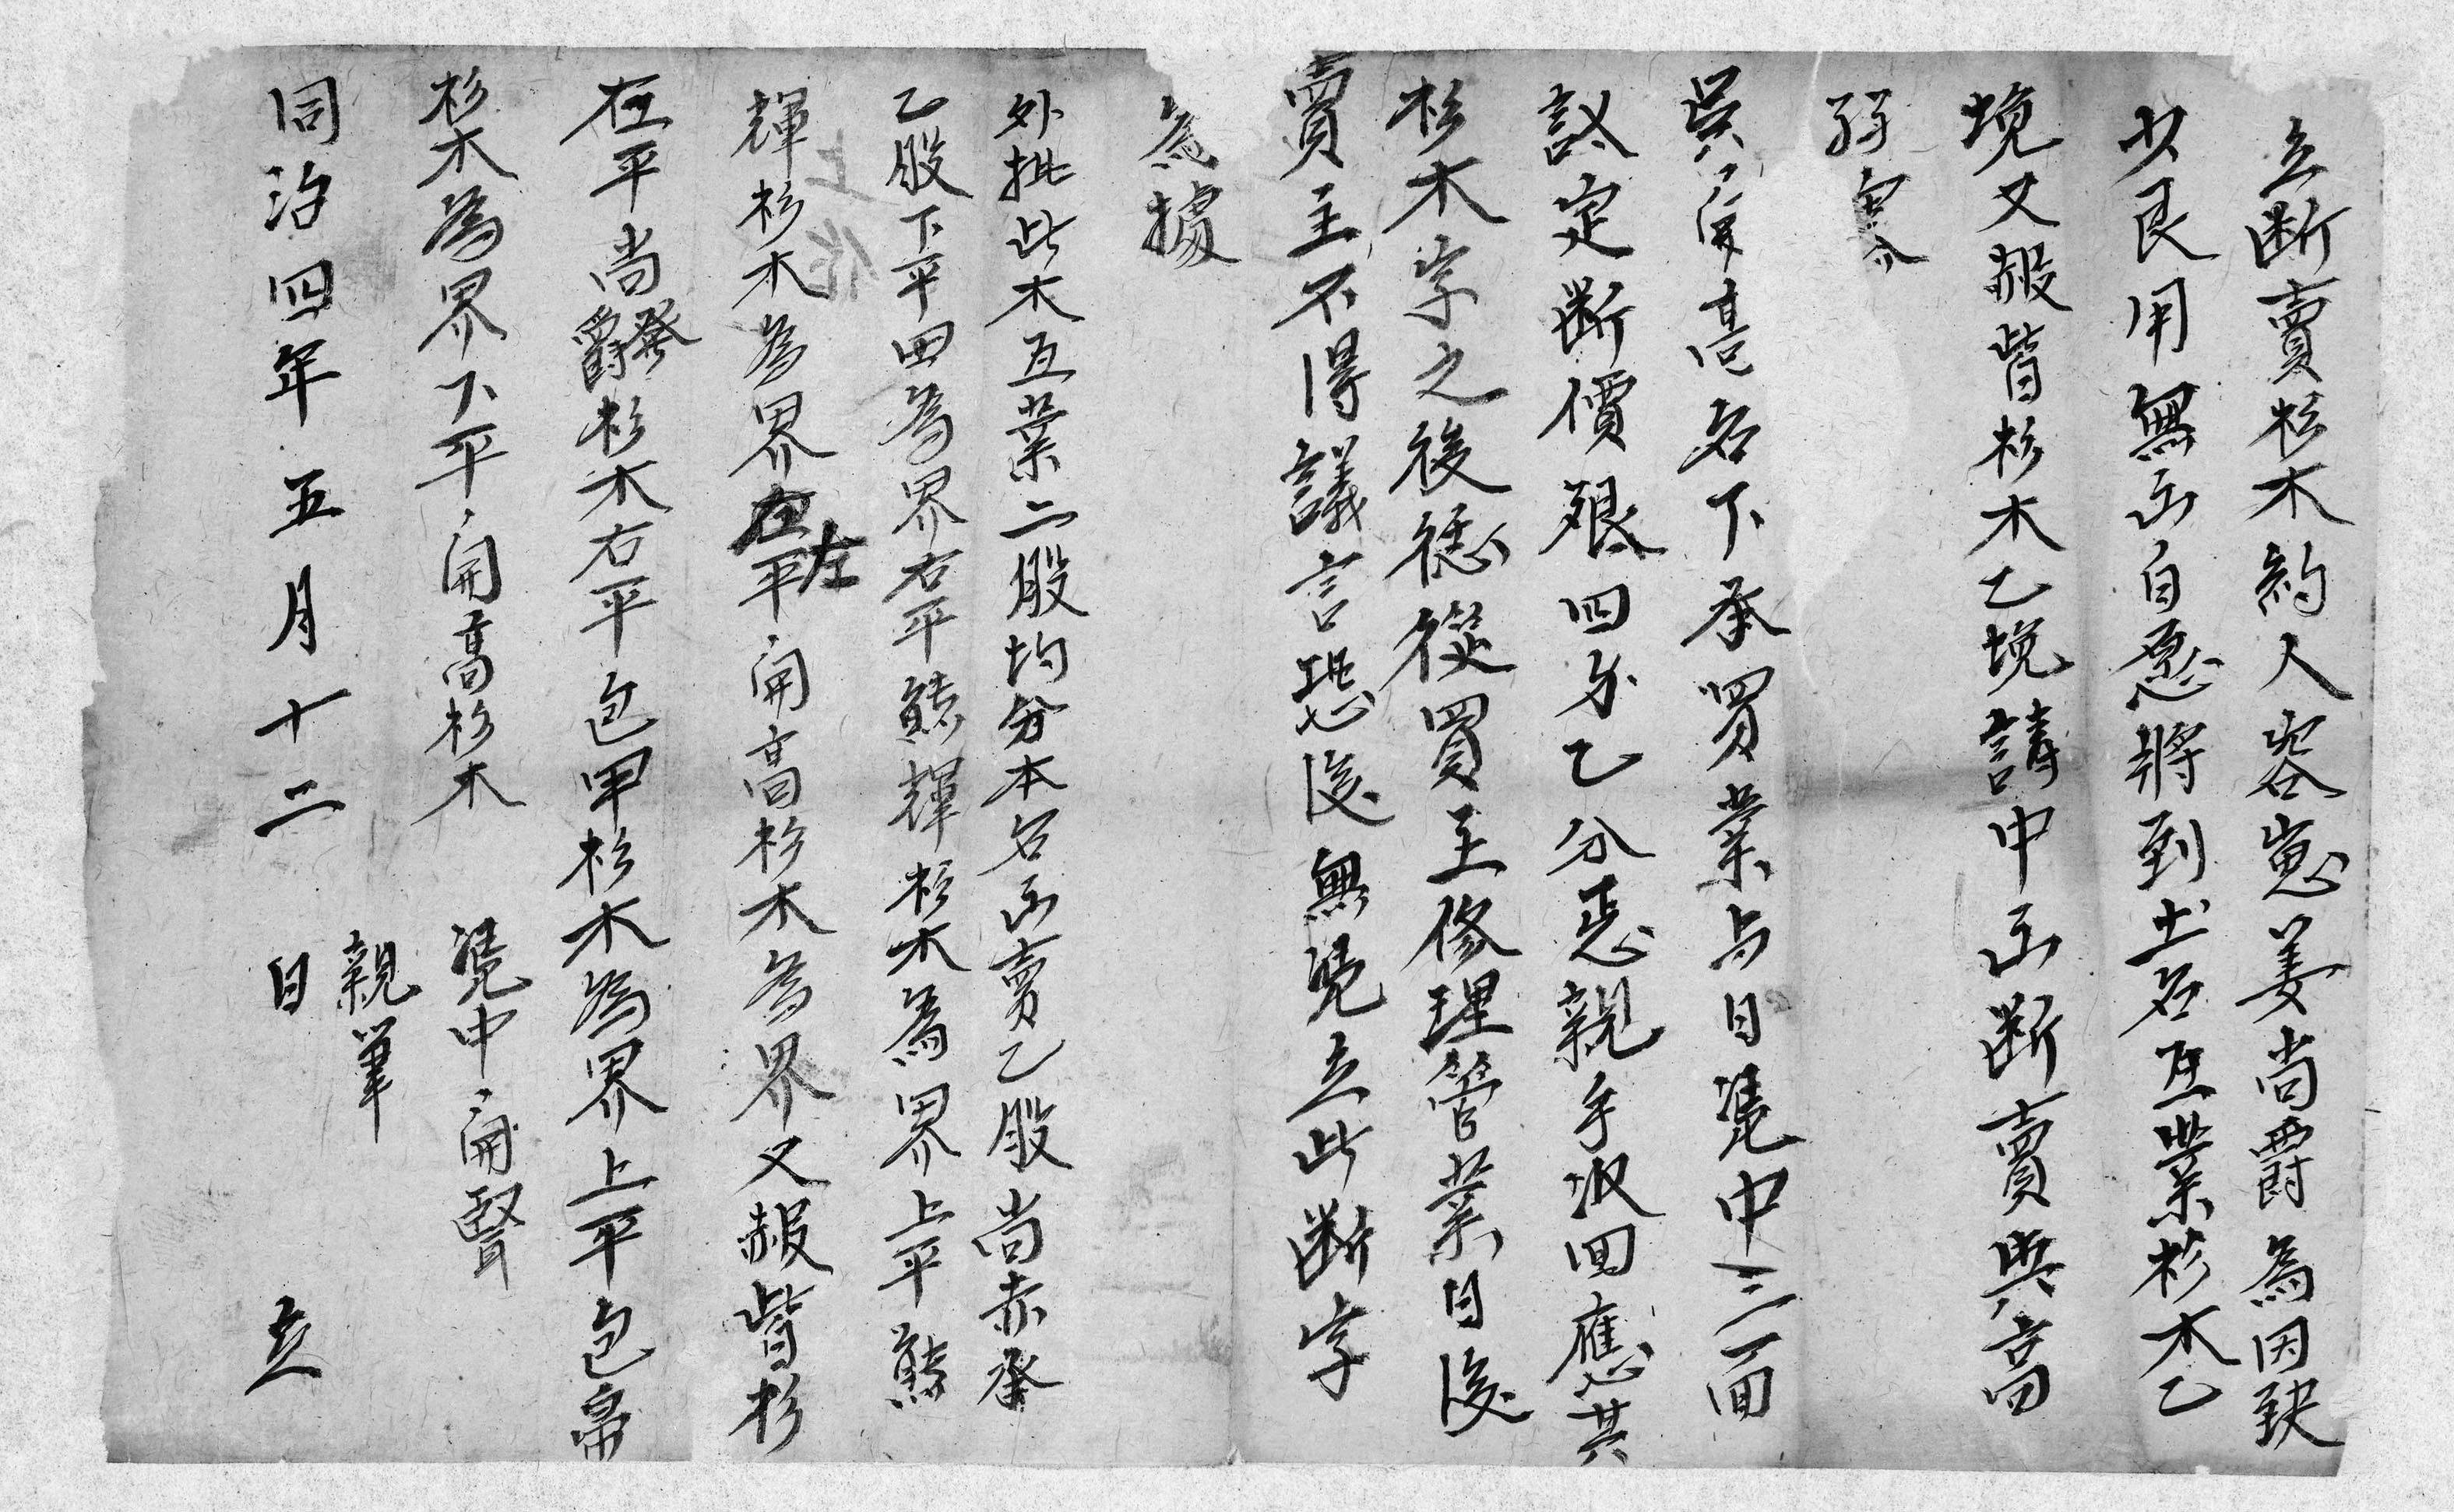 立断賣杉木約人容嵬姜尚爵為因缺
少艮用無出自愿將到土名互業杉木乙
塊又赧皆杉木乙塊請中出断賣與高
吳開高名下承買業与日凴中三面
議定断價艰四分乙分恶親手收回應其
杉木字之後德從買主修理管業日後
賣主不得議言恐後無凴立此断字
為據
外批此木互業二股均分本名出賣乙股尚赤登
乙股下平田為界右平熊輝杉木為界上平熊
輝杉木為界左平開高杉木為界又赧皆杉
在平尚發爵杉木右平包甲杉木為界上平包帛
杉木為界下平開高杉木
凴中開賢
親筆
同治四年五月十二日立